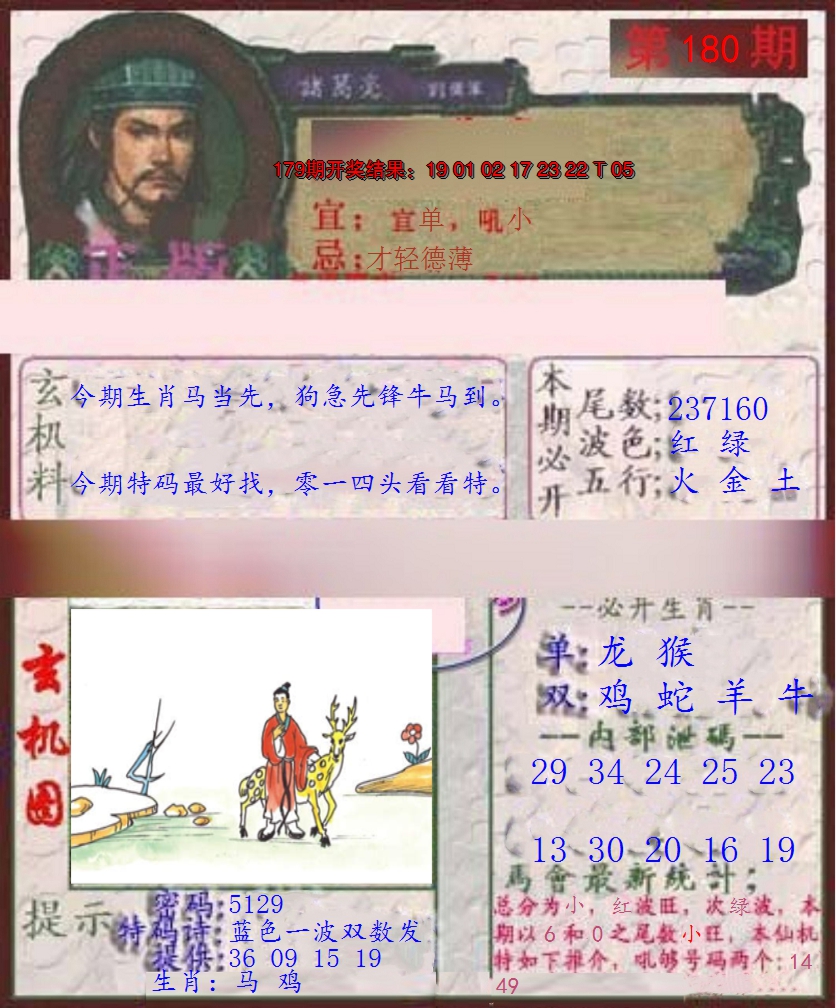 第 180 期
諸葛亮
179期开奖结果：19 01 02 17 23 22 T 05
宜：宜单，吼小
忌：才轻德薄
正版
玄机料
今期生肖马当先，狗急先锋牛马到。
今期特码最好找，零一四头看看特。
本期必开
尾数：237160
波色：红 绿
五行：火 金 土
玄机图
--必开生肖--
单：龙 猴
双：鸡 蛇 羊 牛
一内部泄碼一
29 34 24 25 23
13 30 20 16 19
馬會最新统計；
总分为小，红波旺，次绿波，本
期以6和0之尾数小旺，本仙机
特如下推介，吼够号码两个：14
49
提示
密码：5129
特码诗：蓝色一波双数发
提供：36 09 15 19
生肖：马 鸡